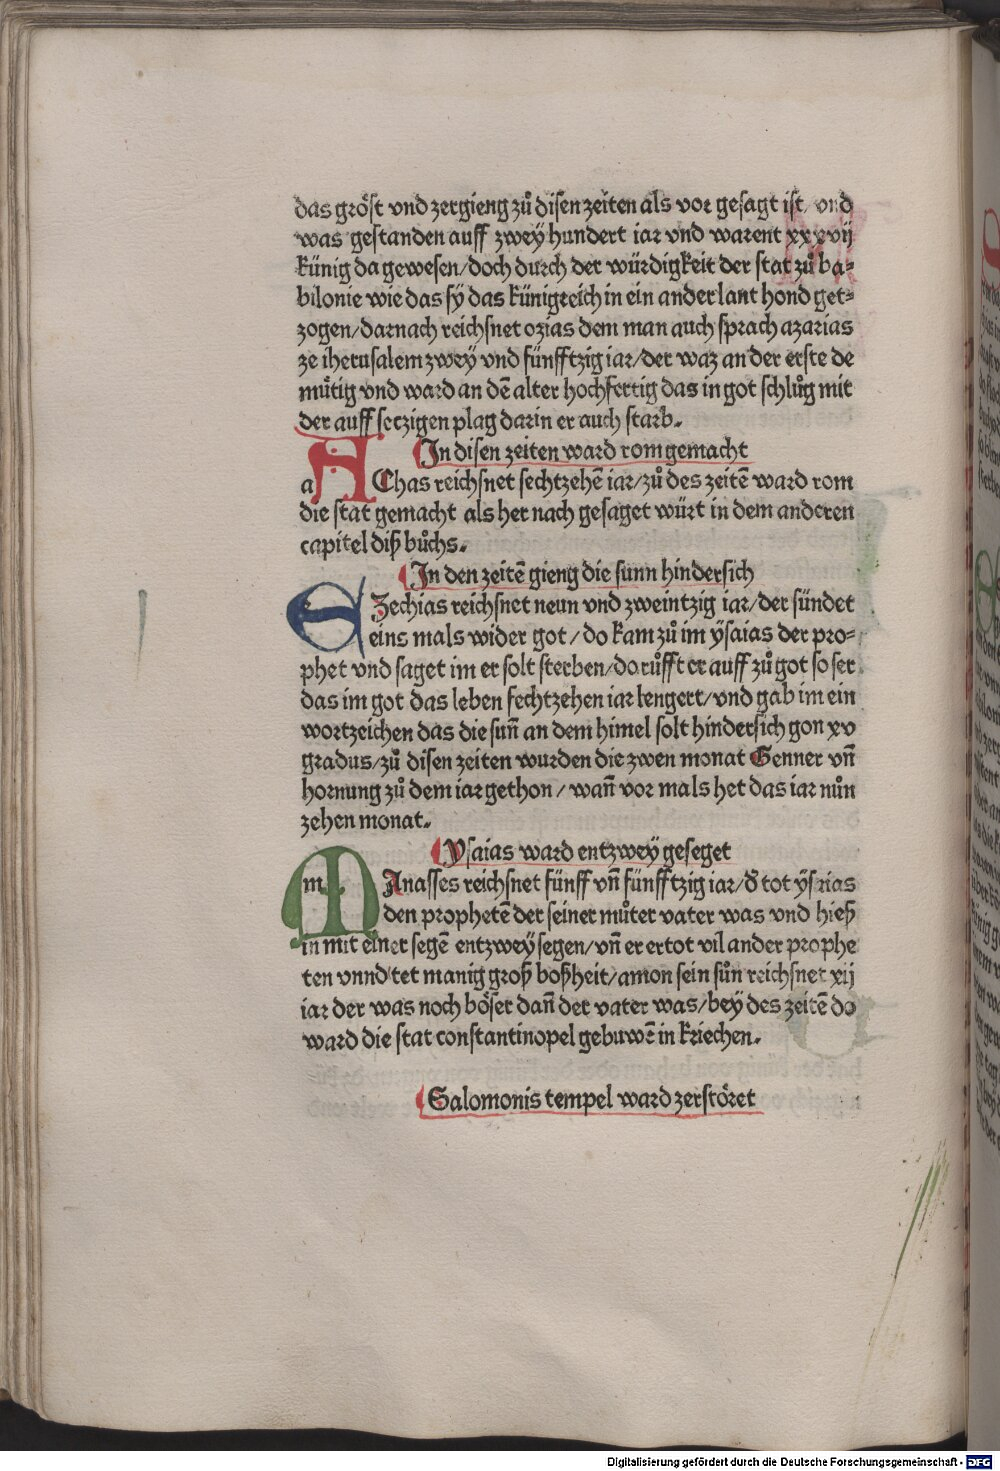 das gröst vnd zergieng zuͦ disen zeiten als vor gesagt ist/ vnd
was gestanden auff zweÿ hundert iar vnd warent xxxvij
künig da gewesen/doch durch der würdigkeit der stat zuͦ ba⸗
bilonie wie das sÿ das künigreich in ein ander lant hond get⸗
zogen/darnach reichsnet ozias dem man auch sprach azarias
ze iherusalem zweÿ vnd fünfftzig iar/der waz an der erste de
muͤtig vnd ward an dē alter hochfertig das in got schluͦg mit
der auff setzigen plag darin er auch starb.
In disen zeiten ward rom gemacht
a AChas reichsnet sechtzehē iar/zuͦ des zeitē ward rom
die stat gemacht als her nach gesaget würt in dem anderen
capitel diß buͦchs.
In den zeitē gieng die sunn hindersich
EZechias reichsnet neun vnd zweintzig iar/der sündet
eins mals wider got/do kam zuͦ im ÿsaias der pro⸗
phet vnd saget im er solt sterben/do ruͦfft er auff zuͦ got so ser
das im got das leben fechtzehen iar lengert/vnd gab im ein
wortzeichen das die sun̄ an dem himel solt hindersich gon xv
gradus/zuͦ disen zeiten wurden die zwen monat Genner vn̄
hornung zuͦ dem iar gethon/wan̄ vor mals het das iar nuͦn
zehen monat.
Ysaias ward entzwey geseget
m MAnasses reichsnet fünff vn̄ fünfftzig iar/d' tot ÿsaias
den prophetē der seiner muͦter vater was vnd hieß
in mit einer segē entzweÿ segen/vn̄ er ertot vil ander prophe
ten vnnd tet manig groß boßheit/amon sein suͦn reichsnet xij
iar der was noch böser dan̄ der vater was/bey des zeitē do
ward die stat constantinopel gebuwē in kriechen.
Salomonis tempel ward zerstöret
Digitalisierung gefördert durch die Deutsche Forschungsgemeinschaft - DFG